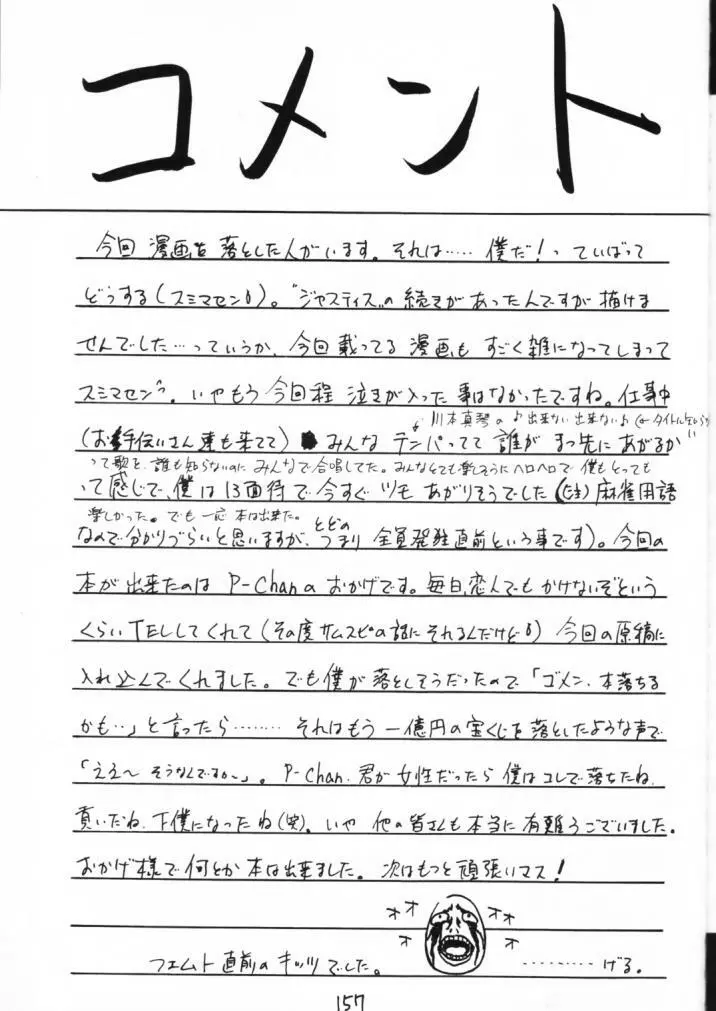 コメント
今回 漫画を落とした人がいます。それは‥‥‥ 僕だ!っていばって
どうする(スミマセン)。"ジャスティス"の続きがあったんですが描けま
せんでした…っていうか、今回載ってる漫画もすごく雑になってしまって
スミマセン。いやもう今回程 泣きが入った事はなかったですね。仕事中
川本真琴の♪出来ない出来ない♪(←タイトル知らず)
(お手伝いさん達も来てて) みんなテンパってて誰がまっ先にあがるか
って歌を、誰も知らないのにみんなで合唱してた。みんなとても楽しそうにヘロヘロで僕もとっても
って感じで、僕は13面待で今すぐツモあがりそうでした(注)麻雀用語
楽しかった。でも一応本は出来た。
なので分かりづらいと思いますが、つまり とどの 全員発狂直前という事です)。今回の
本が出来たのはP-Chanのおかげです。毎日、恋人でもかけないぞという
くらいTELしてくれて(その度サムスピの話にそれるんだけど)今回の原稿に
入れ込んでくれました。でも僕が落としそうだったので「ゴメン、本落ちる
かも‥」と言ったら‥‥‥‥ それはもう 一億円の宝くじを落としたような声で
「ええ～ そうなんですか～」。P-Chan、君が女性だったら僕はコレで落ちたね、
貢いだね、下僕になったね(笑)。いや 他の皆さんも本当に有難うございました。
おかげ様で何とか本は出来ました。次はもっと頑張いマス!
オオ オオ
オ オ
フェムト直前のキッツでした。 ‥‥‥‥‥げる。
157